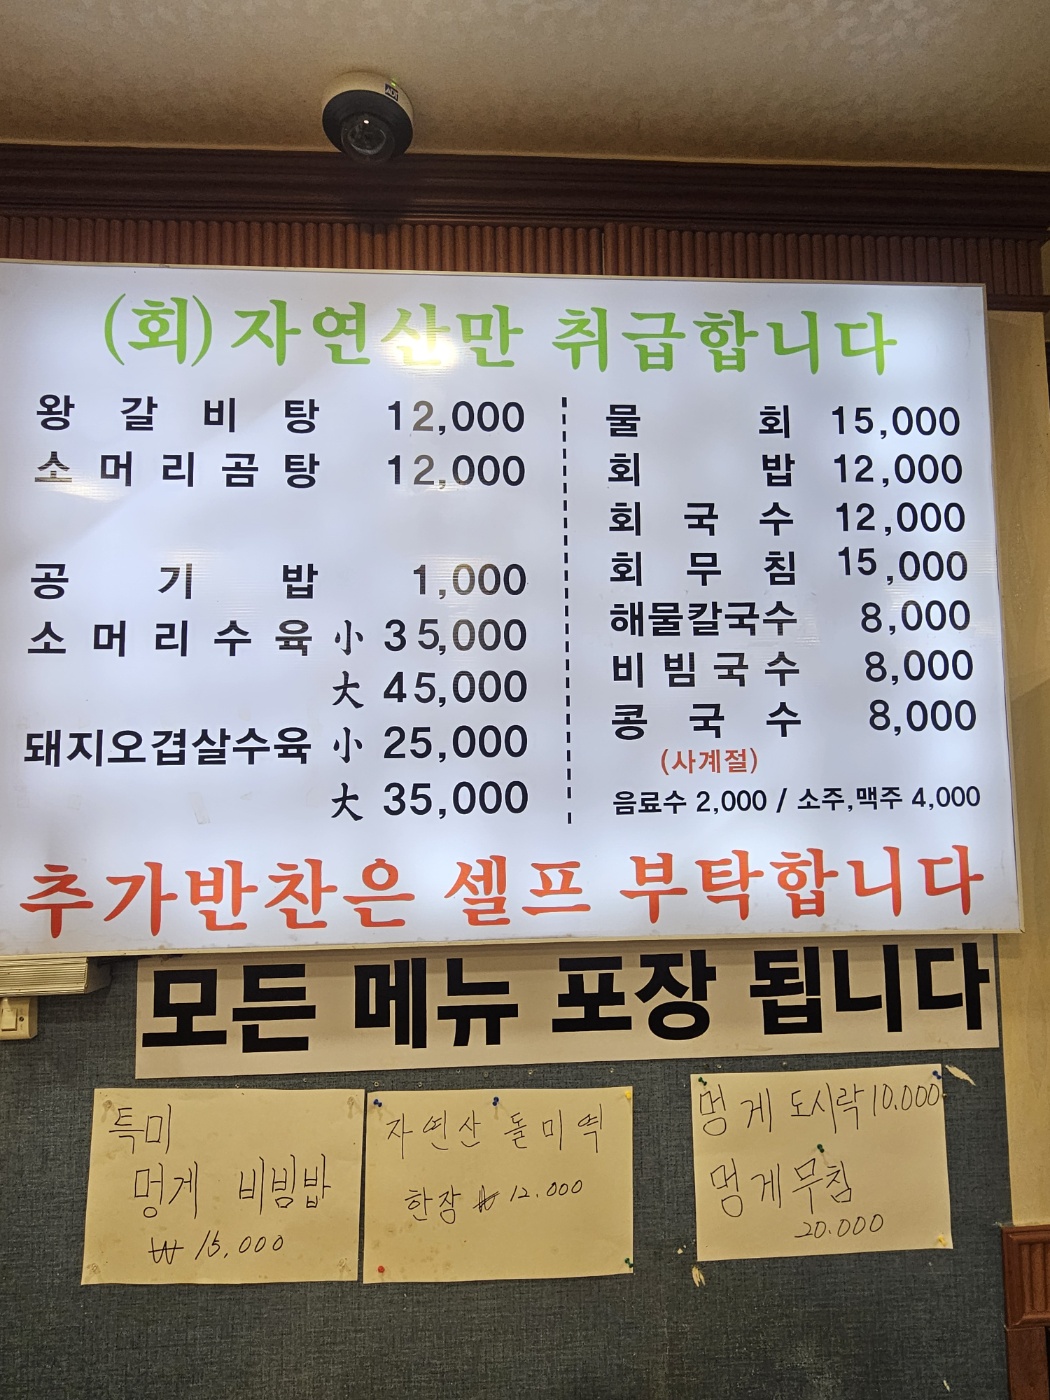 (회)자연산만 취급합니다
왕갈비탕 12,000
소머리곰탕 12,000
공기밥 1,000
소머리수육 小 35,000
大 45,000
돼지오겹살수육 小 25,000
大 35,000
물회 15,000
회밥 12,000
회국수 12,000
회무침 15,000
해물칼국수 8,000
비빔국수 8,000
콩국수 8,000
(사계절)
음료수 2,000 / 소주,맥주 4,000
추가반찬은 셀프 부탁합니다
모든 메뉴 포장 됩니다
특미
멍게 비빔밥
₩ 15,000
자연산 돌미역
한장 ₩ 12.000
멍게 도시락 10.000
멍게무침
20.000